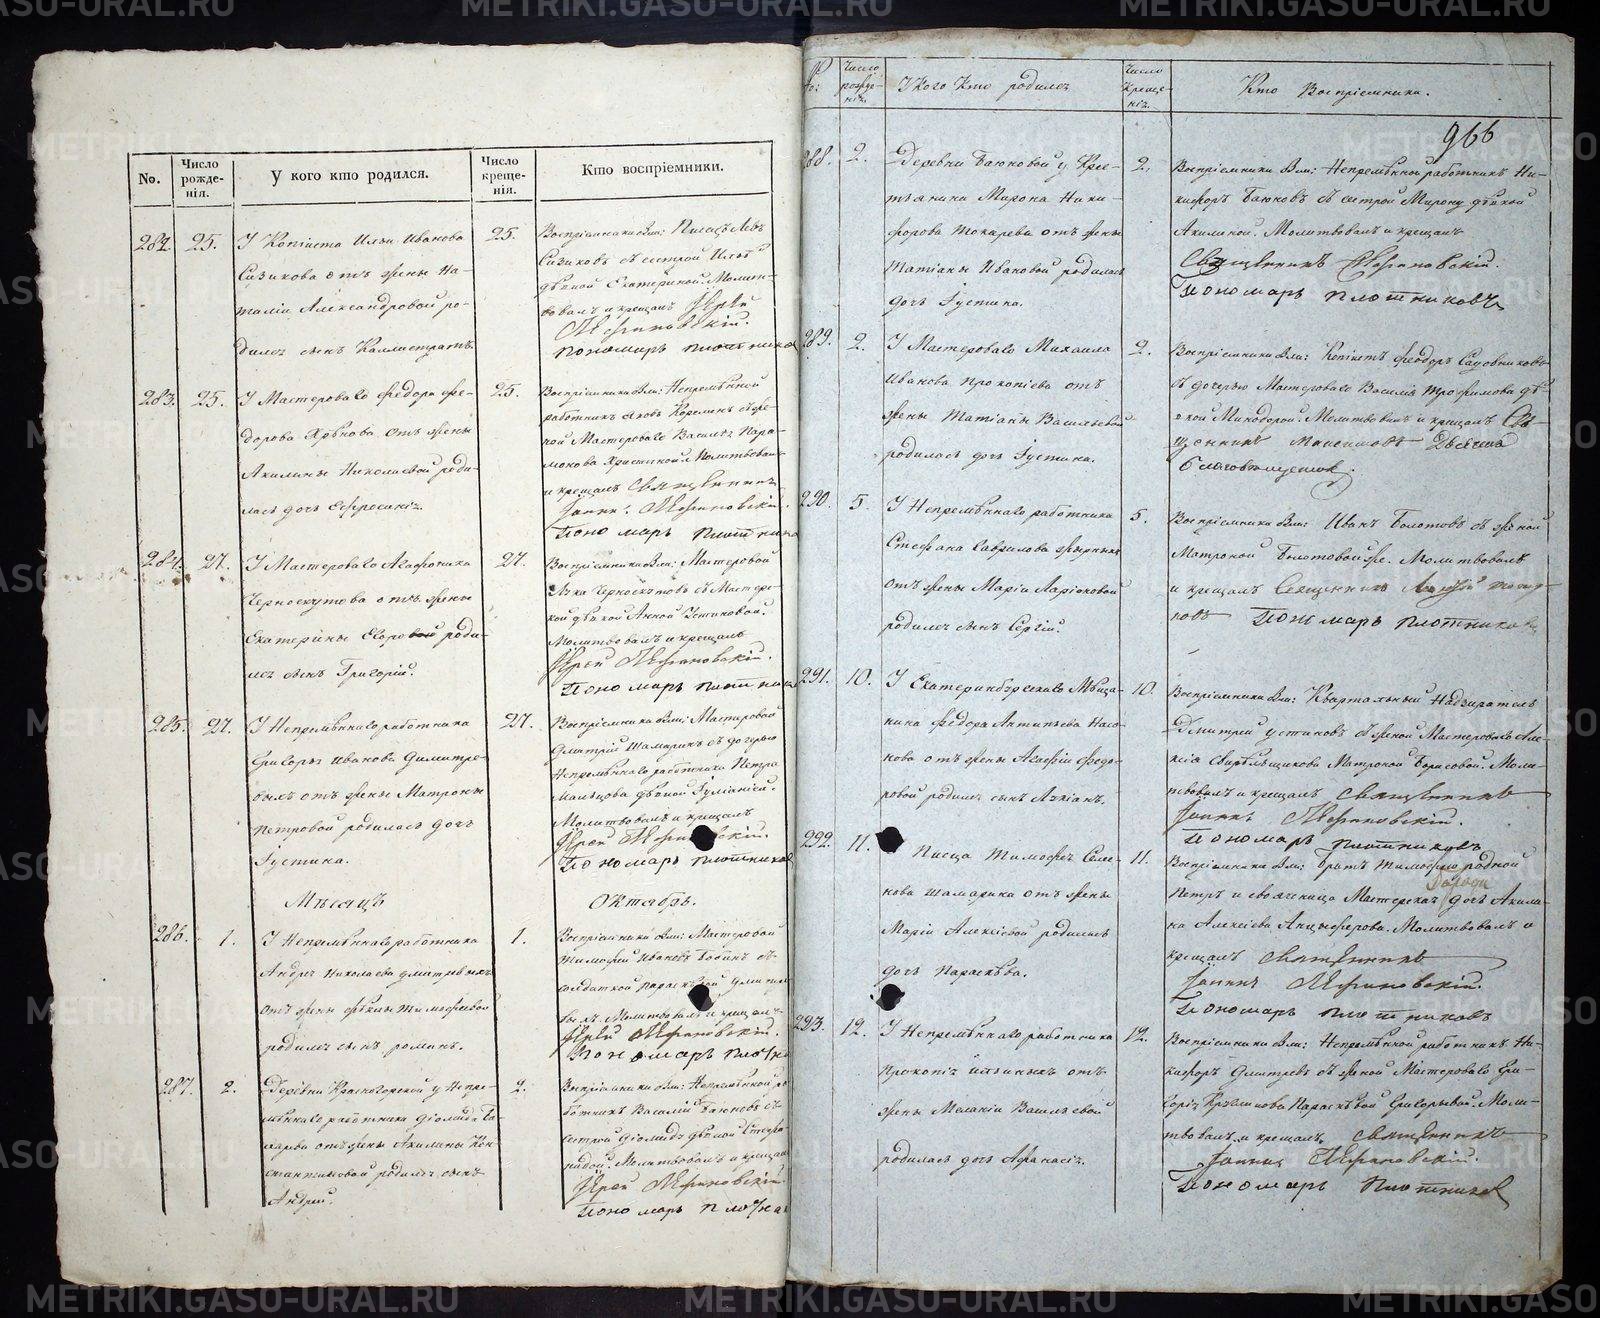 No.
Число рожде- нія.
У кого кто родился.
Число креще- нія.
Кто воспріемники.
282. 25.
У Копіиста Ильи Иванова
Сизикова отъ жены На-
таліи Александровой ро-
дился сынъ Каллистратъ.
25.
Воспріемники были: Писецъ Левъ
Сизиковъ съ сестрой Ильи
дѣвкой Екатериной. Молит-
вовалъ и крещалъ Іерей
Пономарь Плотников
283. 25.
У Мастероваго Федора Фе-
дорова Хрѣнова отъ жены
Акилины Николаевой роди-
лась дочь Ефросинія.
25.
Воспріемники были: Непремѣнной
работникъ Яковъ съ же-
ной Мастероваго Василья Пара-
монова Христиной. Молитвовалъ
и крещалъ Священникъ
Іоаннъ
Пономарь Плотников
284. 27.
У Мастероваго Агафоника
Черноскутова отъ жены
Екатерины Егоровой роди-
лся сынъ Григорій.
27.
Воспріемники были: Мастеровой
Черноскутовъ съ Мастерс-
кой дѣвкой Анной Устиновой.
Молитвовалъ и крещалъ
Іерей
Пономарь Плотник
285. 27.
У Непремѣннаго работника
Григорья Иванова Димитре-
выхъ отъ жены Матроны
Петровой родилась дочь
Іустина.
27.
Воспріемники были: Мастеровой
Дмитрій Шамаринъ съ дочерью
Непремѣннаго работника Петра
Мальцова дѣвкой
Молитвовалъ и крещалъ
Іерей
Пономарь Плотников
Мѣсяцъ Октябрь.
286. 1.
У Непремѣннаго работника
Андрея Николаева Дмитревыхъ
отъ жены Феклы Тимофеевой
родился сынъ Романъ.
1.
Воспріемники были: Мастеровой
Тимофей Ивановъ Бабинъ съ
солдаткой Парасковой Дмитре
выхъ. Молитвовалъ и крещалъ
Іерей
Пономарь Плотни
287. 2.
Деревни Красногорской у Непре-
мѣннаго работника Діомида Та
карева отъ жены Акилины Кон-
стантиновой родился сынъ
Андрей.
2.
Воспріемники были: Непремѣнной ра
ботникъ Василій Баюковъ съ
сестрой Діомида дѣвкой Стефа-
нидой. Молитвовалъ и крещалъ
Іерей
Пономарь Плотни
No:
Число рожде- нія.
У кого Кто родился
Число Креще- нія.
Кто Воспріемники.
966
288. 2.
Деревни Баюковой у Крес-
тьянина Мирона Ники-
форова Токарева отъ жены
Татіаны Ивановой родилась
дочь Іустина.
2.
Воспріемники были: Непремѣнной работникъ Ни-
кифоръ Баюковъ съ сестрой Мирону дѣвкой
Акилиной. Молитвовалъ и крещалъ
Священникъ
Пономарь Плотниковъ
289. 2.
У Мастероваго Михаила
Иванова Прокопіева отъ
жены Татіаны Васильевой
родилась дочь Іустина.
2.
Воспріемники были: Копіистъ Феодоръ Садовниковъ
съ дочерью Мастероваго Василья Трофимова дѣ-
вкой Минодорой. Молитвовалъ и крещалъ Свя-
щенникъ
290. 5.
У Непремѣннаго работника
Стефана Гаврилова Жирныхъ
отъ жены Маріи Ларіоновой
родился сынъ Сергій.
5.
Воспріемники были: Иванъ Болотовъ съ женой
Матроной Болотовой же. Молитвовалъ
и крещалъ Священникъ Андрей
Пономарь Плотников
291. 10.
У Екатеринбургскаго Мѣща-
нина Федора Антипьева Насо-
нова отъ жены Агафіи Федо-
ровой родился сынъ Адріанъ.
10.
Воспріемники были: Квартальный Надзиратель
Дмитрій Устиновъ съ женой Мастероваго Але-
ксія Свирѣльщикова Матроной Борисовой. Моли-
твовалъ и крещалъ Священникъ
Іоаннъ
Пономарь Плотниковъ
292. 11.
Писца Тимофея Семе-
нова Шамарина отъ жены
Маріи Алексіевой родилась
дочь Параскѣва.
11.
Воспріемники были: Братъ Тимофею родной
Петръ и своячница Мастерская дочь Акили-
на Алексіева Анциферова. Молитвовалъ и
крещалъ Священникъ
Іоаннъ
Пономарь Плотниковъ
293. 12.
У Непремѣннаго работника
Прокопія Ильиныхъ отъ
жены Меланіи Васильевой
родилась дочь Афанасія.
12.
Воспріемники были: Непремѣнной работникъ Ни-
кифоръ Дмитревъ съ женой Мастероваго Гри-
горія Параскѣвой Григорьевой. Моли-
твовалъ и крещалъ Священникъ
Іоаннъ
Пономарь Плотников
METRIKI.GASO-URAL.RU